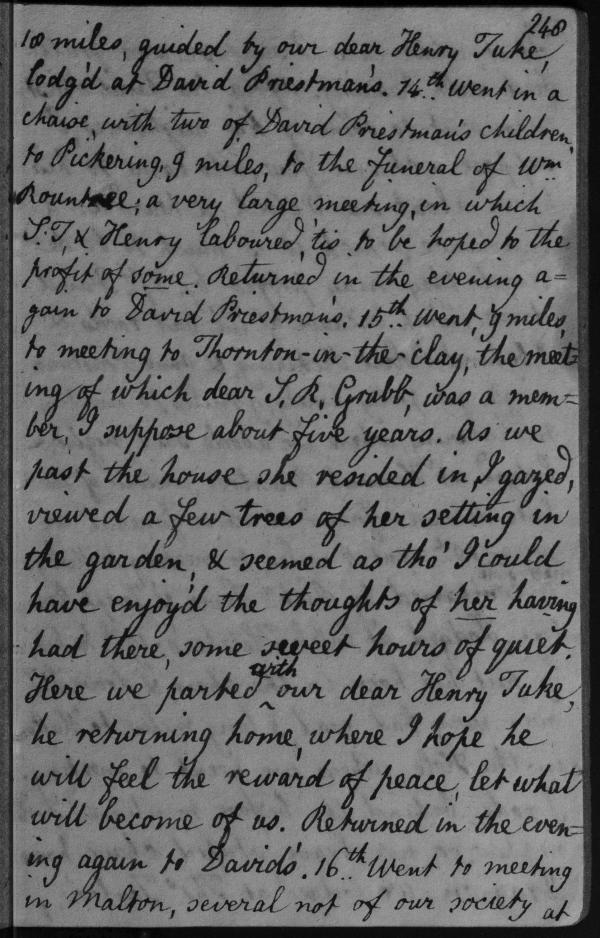 248
18 miles, guided by our dear Henry Tuke,
lodg'd at David Priestman's. 14.th went in a
chaise, with two of David Priestman's children,
to Pickering, 9 miles, to the funeral of Wm
Rountree; a very large meeting, in which
S.T, & Henry laboured, 'tis to be hoped to the
profit of some. Returned in the evening a=
gain to David Priestman's. 15.th went, 9 miles,
to meeting to Thornton-in-the-clay, the meet=
ing of which dear S. R. Grubb, was a mem=
ber, I suppose about five years. As we
past the house she resided in, I gazed,
viewed a few trees of her setting in
the garden, & seemed as tho' I could
have enjoy'd the thoughts of her having
had there, some sweet hours of quiet.
Here we parted with our dear Henry Tuke,
he returning home, where I hope he
will feel the reward of peace, let what
will become of us. Returned in the even=
ing again to David's. 16.th Went to meeting
in Malton, several not of our society at